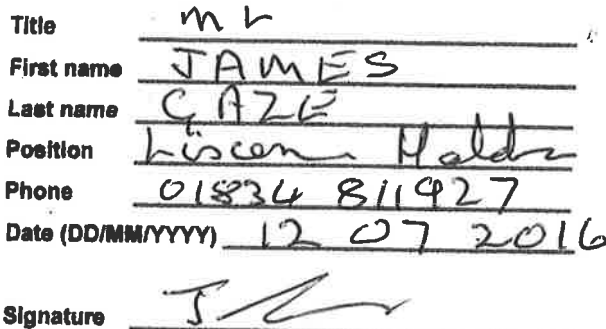 Title Mr
First name JAMES
Last name GAZE
Position Liscen Holder
Phone 01834 811927
Date (DD/MM/YYYY) 12 07 2016
Signature